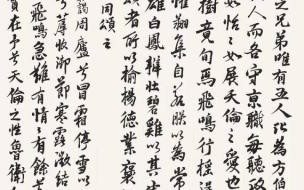 之兄弟唯有五人比為方伯
人而各守京職每聽政
如怡怡如展天倫之愛也
樹竟旬焉飛鳴行搖得
懼翔集自若朕以為常
雄白鳳辯壯碧雞以其宏
頌者所以揄揚德業褒
同頌云
藹周廬兮冒霜停雪以
兮蓐收御節寒露微結
飛鳴急難有情情有餘兮
實在予兮天倫之性魯衛